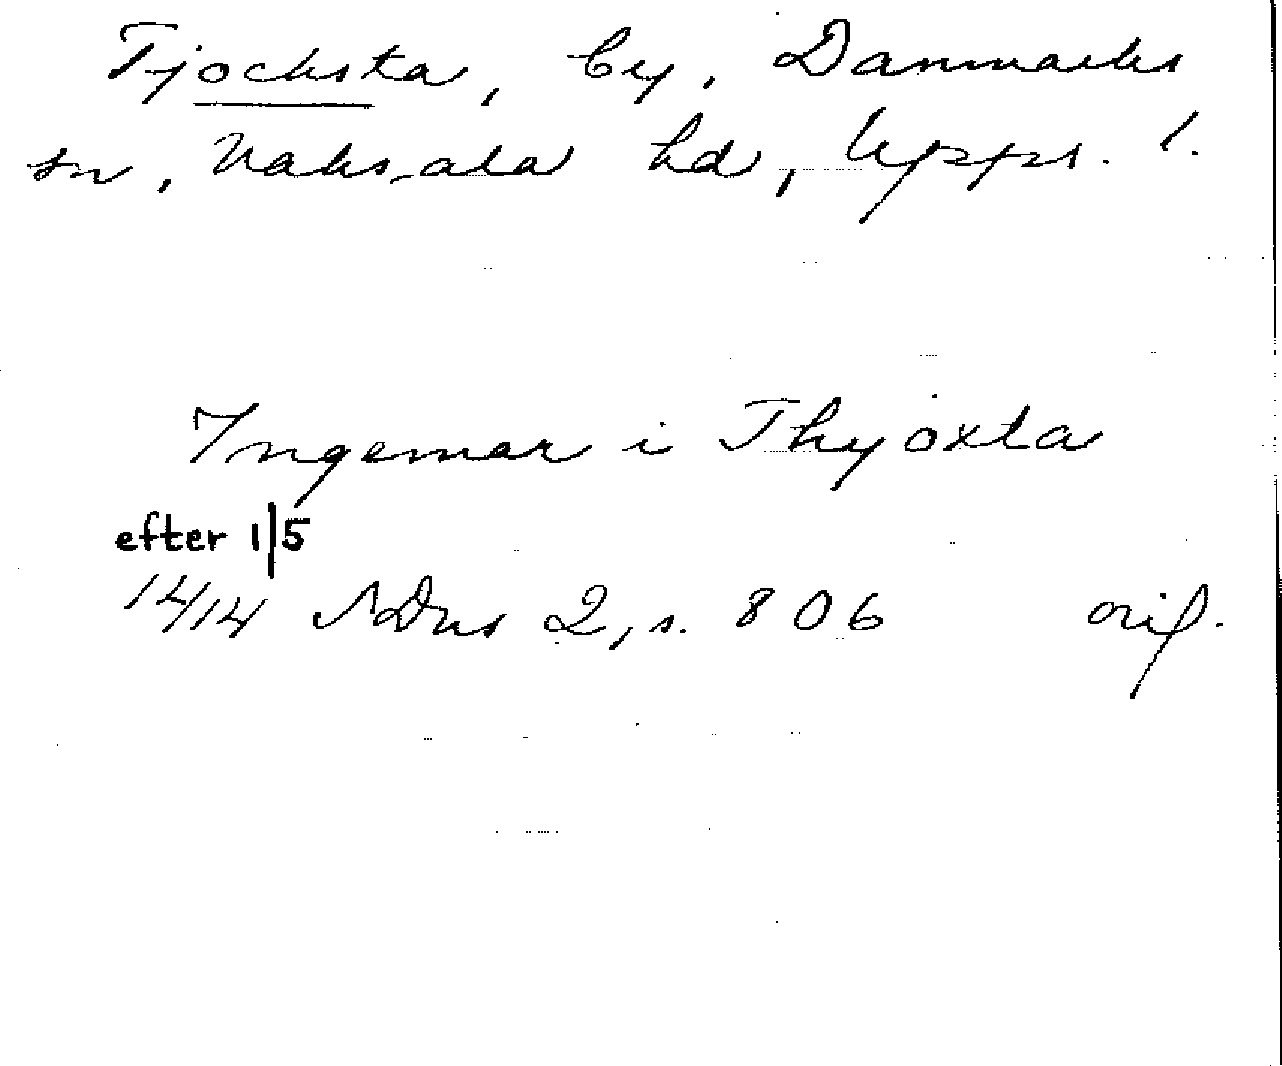 Tjocksta, by, Danmarks
sn, Vaksala hd, Upps. l.
Ingemar i Thyöxta
efter 1/5
1414 SDns 2, s. 806 orig.